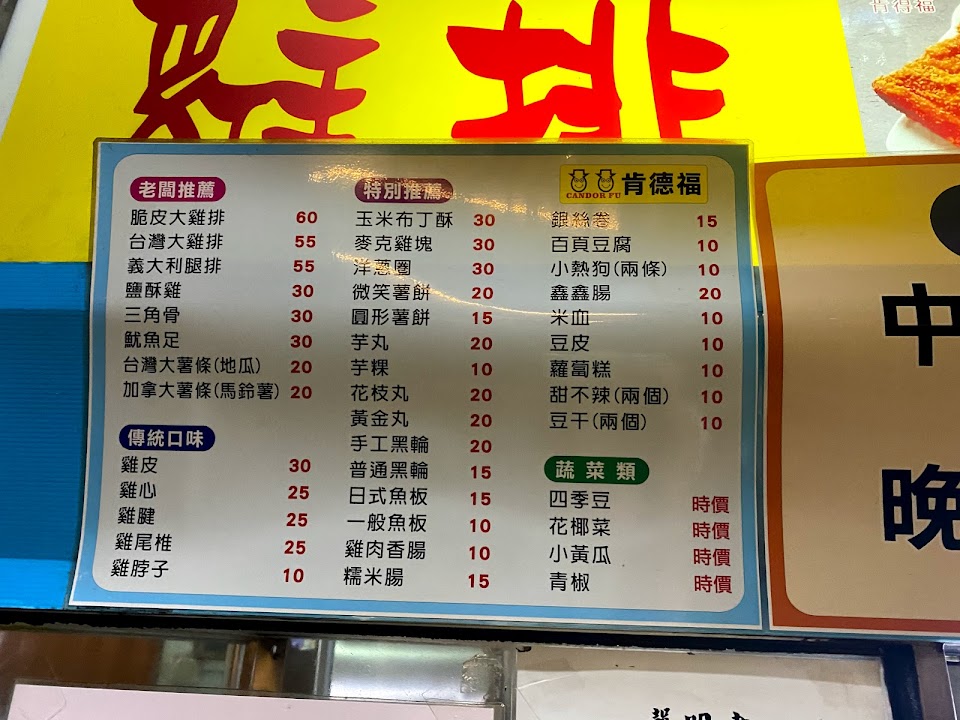 肯得福
雞排
老闆推薦
脆皮大雞排 60
台灣大雞排 55
義大利腿排 55
鹽酥雞 30
三角骨 30
魷魚足 30
台灣大薯條(地瓜) 20
加拿大薯條(馬鈴薯) 20
傳統口味
雞皮 30
雞心 25
雞腱 25
雞尾椎 25
雞脖子 10
特別推薦
玉米布丁酥 30
麥克雞塊 30
洋蔥圈 30
微笑薯餅 20
圓形薯餅 15
芋丸 20
芋粿 10
花枝丸 20
黃金丸 20
手工黑輪 20
普通黑輪 15
日式魚板 15
一般魚板 10
雞肉香腸 10
糯米腸 15
CANDOR FU 肯德福
銀絲卷 15
百頁豆腐 10
小熱狗(兩條) 10
鑫鑫腸 20
米血 10
豆皮 10
蘿蔔糕 10
甜不辣(兩個) 10
豆干(兩個) 10
蔬菜類
四季豆 時價
花椰菜 時價
小黃瓜 時價
青椒 時價
中
晚